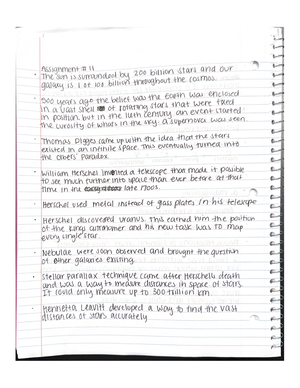 Assignment #11
The sun is surrounded by 200 billion stars and our
galaxy is 1 of 100 billion throughout the cosmos.
500 years ago the belief was the Earth was enclosed
in a vast shell of rotating stars that were fixed
in position but in the 16th century an event started
the curiosity of whats in the sky: a supernova was seen.
Thomas Digges came up with the idea that the stars
existed in an infinite space. This eventually turned into
the Olbers' Paradox.
William Herschel invented a telescope that made it possible
to see much further into space than ever before at that
time in the late 1700s.
Herschel used metal instead of glass plates in his telescope
Herschel discovered Uranus. This earned him the position
of the kings astronomer and his new task was to map
every single star.
Nebulae were soon observed and brought the question
of other galaxies existing.
Stellar Parallax technique came after Herschel's death
and was a way to measure distances in space of stars.
It could only measure up to 300 trillion km.
Henrietta Leavitt developed a way to find the vast
distances of stars accurately.